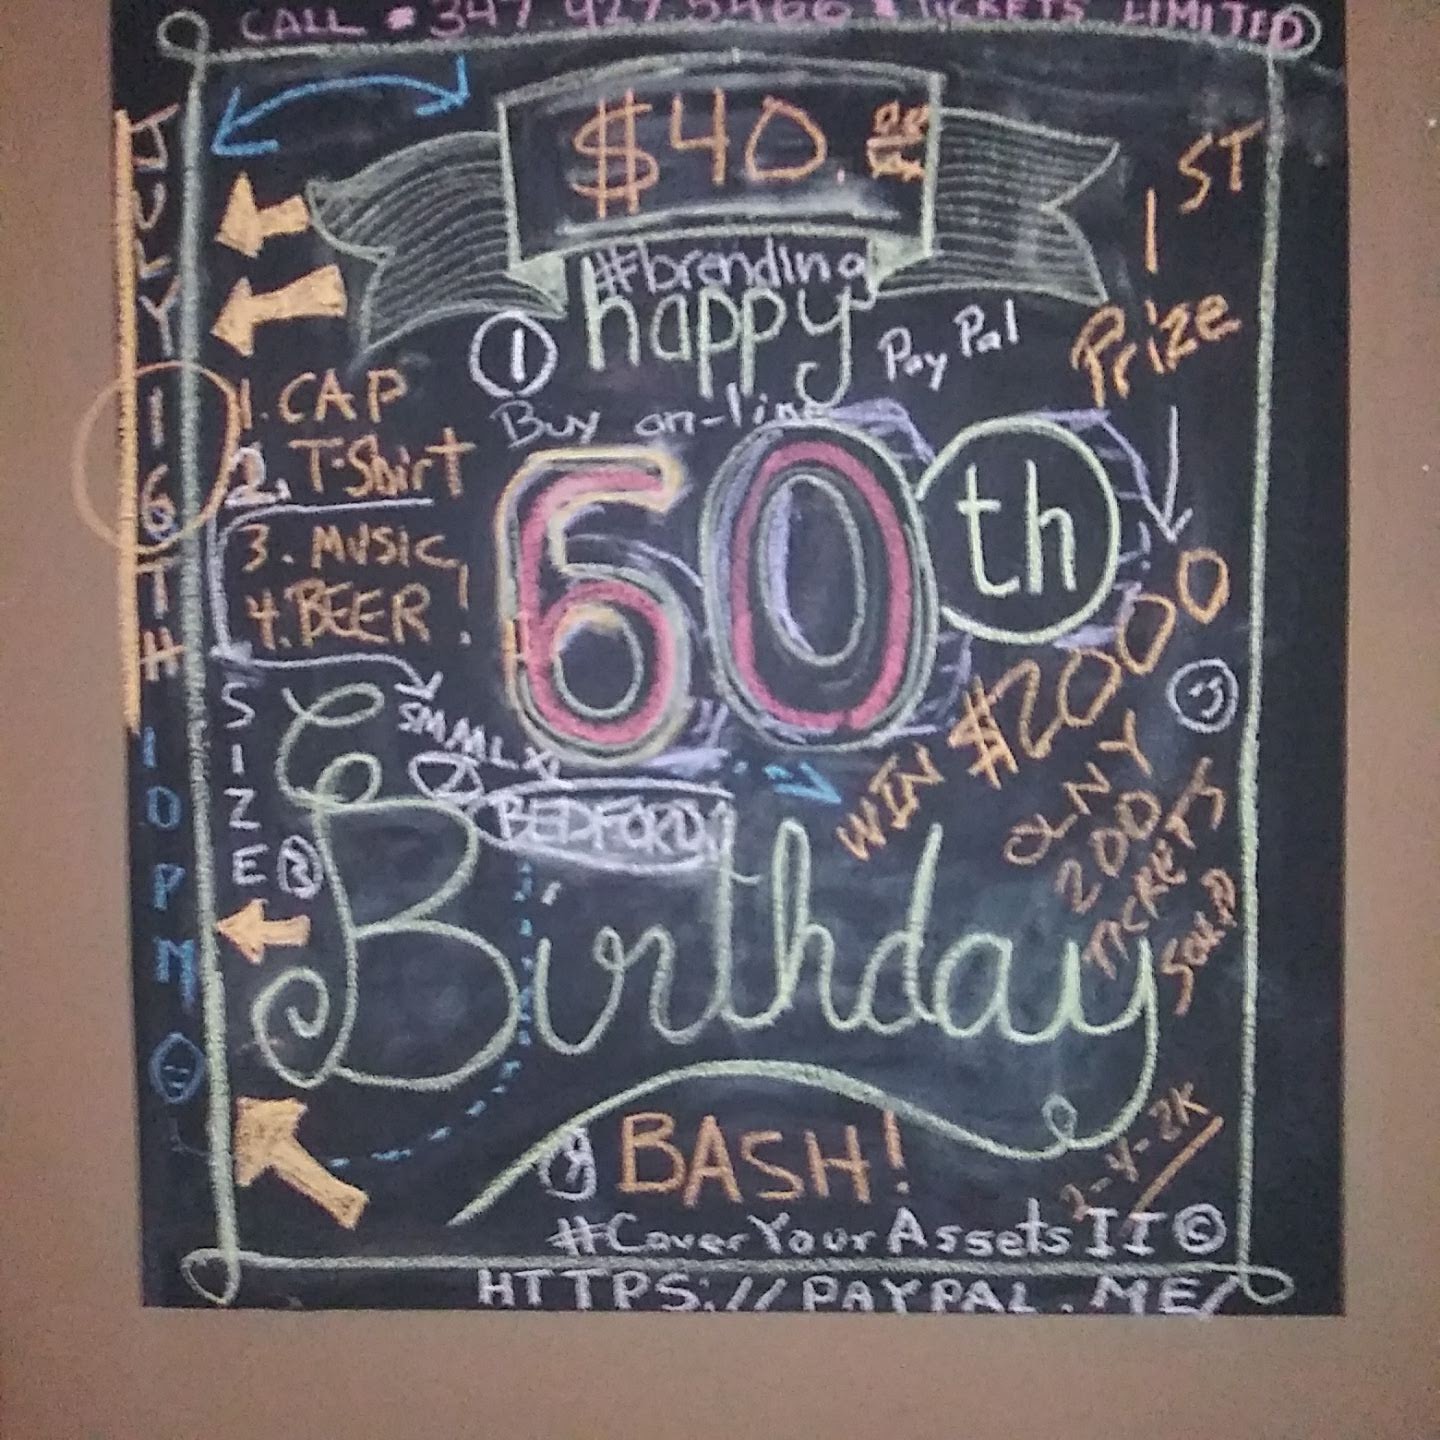 CALL # 347 927 5466 TICKETS LIMITED
$40.00
1ST
#brending
happy
Prize
1
PayPal
Buy on-line
JULY
16TH
10PM
1. CAP
2. T-Shirt
3. MUSIC
4. BEER!
60th
$2000
WIN
SIZE
2
SMMLX
BEDFORD
ONLY
200
TICKETS
SOLD
Birthday
BASH!
2-4-2K
#CoverYourAssets II ©
HTTPS://PAYPAL.ME/